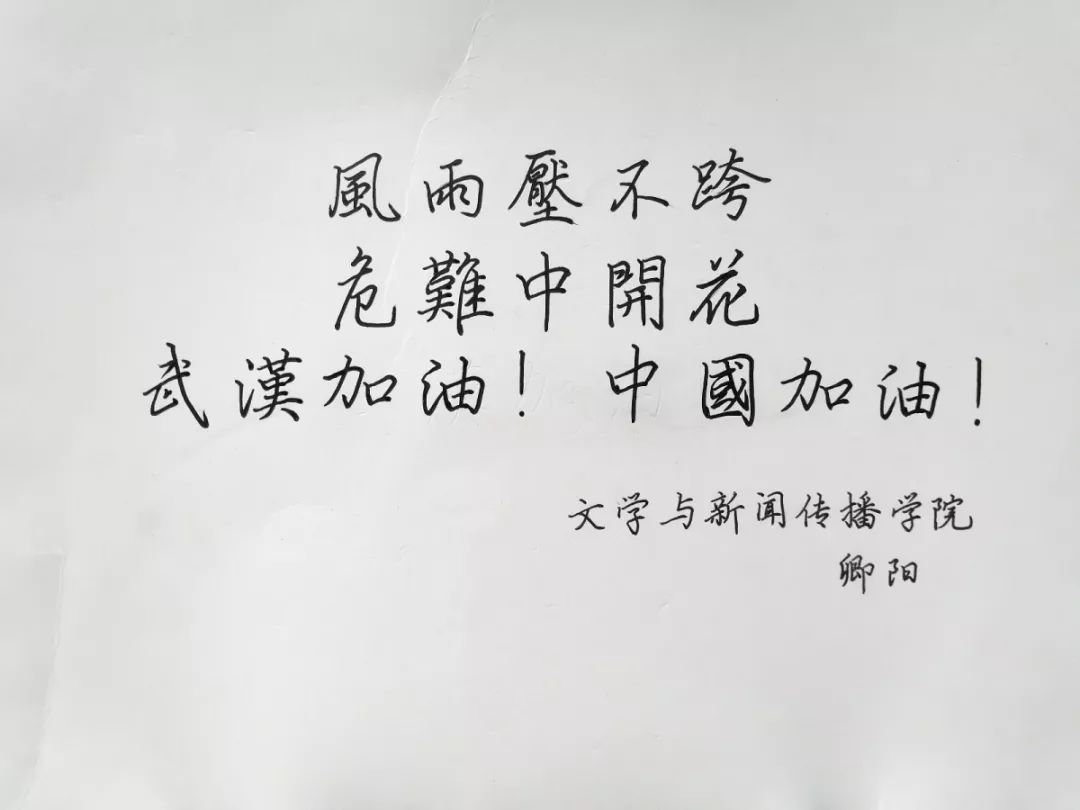 風雨壓不跨
危難中開花
武漢加油！中國加油！
文学与新闻传播学院
卿阳